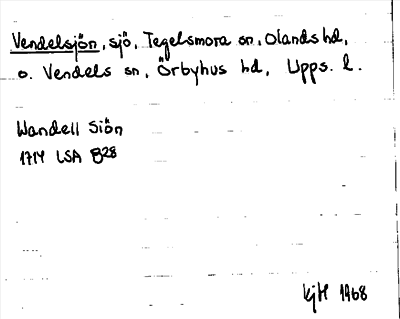 Vendelsjön, sjö, Tegelsmora sn, Olands hd,
o. Vendels sn, Örbyhus hd, Upps. l.
Wandell Siön
1714 LSA B28
KjH 1968